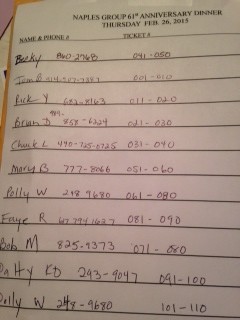 NAPLES GROUP 61st ANNIVERSARY DINNER
THURSDAY FEB. 26, 2015
NAME & PHONE # TICKET #
Becky 860-2768 041-050
Jam D 001-010
Rick Y 682-8163 011-020
989-
Brian D 858-6224 021-030
Chuck L 440-725-0725 031-040
Mary B 777-8066 051-060
Polly W 248 9680 061-080
Faye R 081-090
Bob M 825-9373 071-080
Patty KD 293-9047 091-100
Polly W 248-9680 101-110